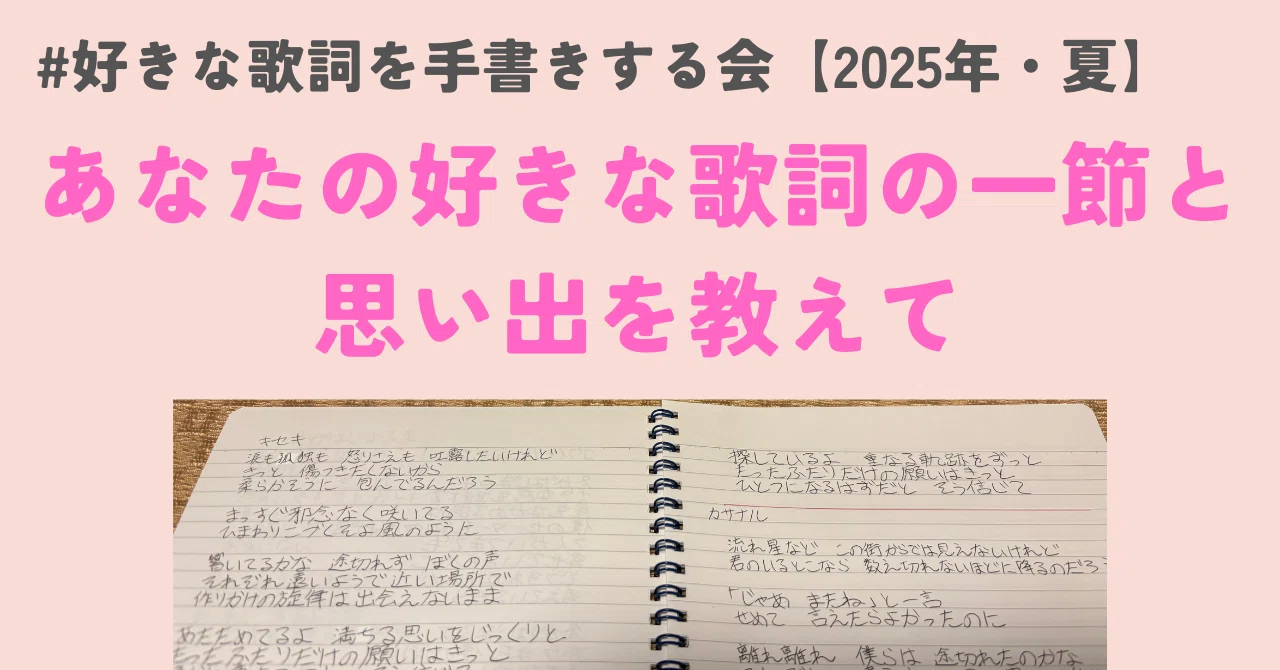 #好きな歌詞を手書きする会【2025年・夏】
あなたの好きな歌詞の一節と
思い出を教えて
キセキ
涙も孤独も 怒りさえも 吐露したいけれど
きっと 傷つきたくないから
柔らかそうに 包んでるんだろう
まっすぐ邪念なく咲いてる
ひまわりこつくそよ風のように
響いてるかな 途切れず ぼくの声
それぞれ遠いようで近い場所で
作りかけの旋律は出会えないまま
あたためてるよ 満ちる思いをじっくりと
たったふたりだけの願いはきっと
探しているよ 重なる軌跡をずっと
たったふたりだけの願いはきっと
ひとつになるはずだと そう信じて
カサナル
流れ星など この街からでは見えないけれど
君のいるとこなら 数え切れないほどに降るのだろう
「じゃあ またね」と一言
せめて 言えたらよかったのに
離れ離れ 僕らは 途切れたのかな